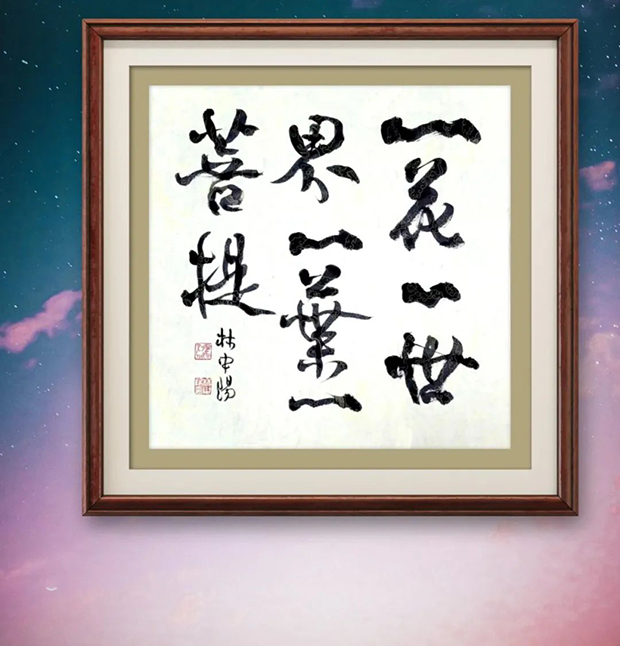 一花一世
界一葉一
菩提
林中陽